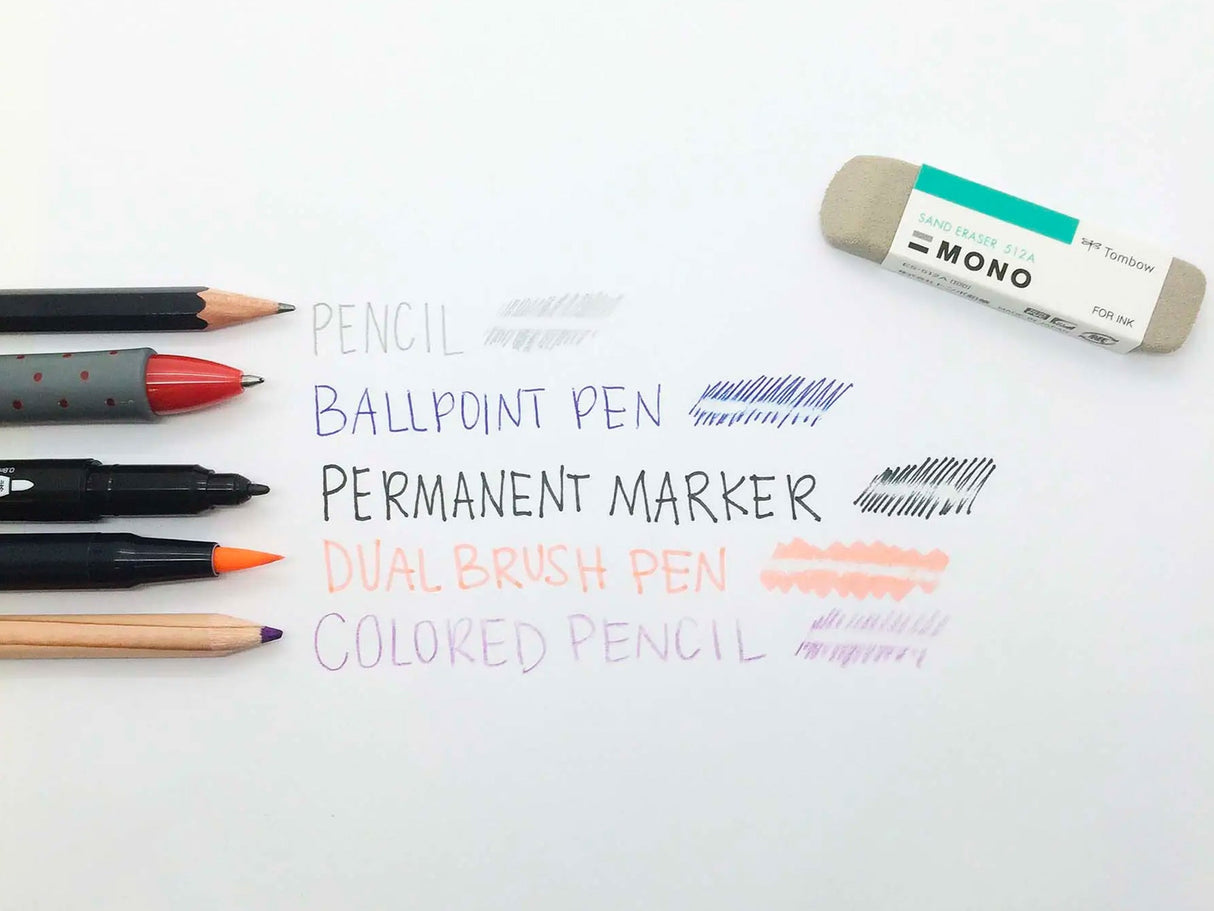 SAND ERASER 512A
MONO
Tombow
ES-512A
FOR INK
MADE IN JAPAN
PENCIL
BALLPOINT PEN
PERMANENT MARKER
DUAL BRUSH PEN
COLORED PENCIL